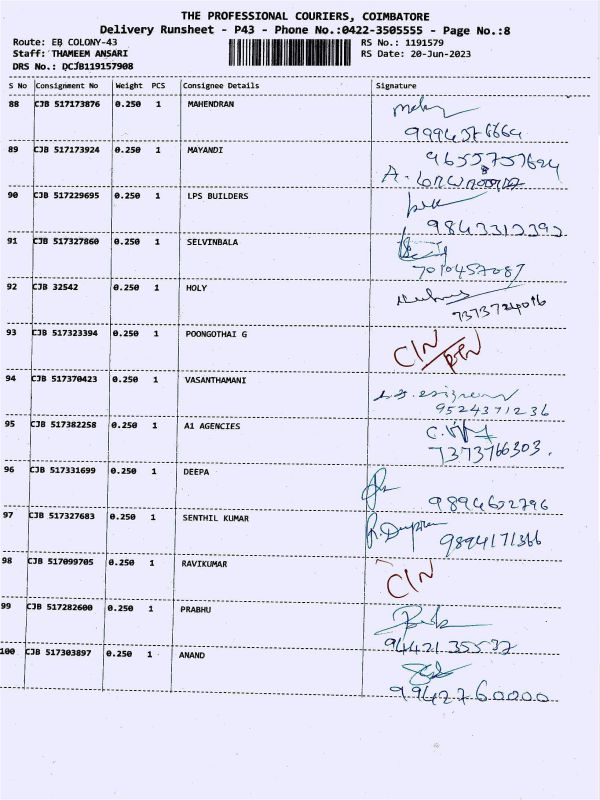 THE PROFESSIONAL COURIERS, COIMBATORE
Delivery Runsheet - P43 - Phone No.:0422-3505555 - Page No.:8
Route: EB COLONY-43 RS No.: 1191579
Staff: THAMEEM ANSARI RS Date: 20-Jun-2023
DRS No.: DCJB119157908
S No Consignment No Weight PCS Consignee Details Signature
88 CJB 517173876 0.250 1 MAHENDRAN
89 CJB 517173924 0.250 1 MAYANDI
90 CJB 517229695 0.250 1 LPS BUILDERS
9843312392
91 CJB 517327860 0.250 1 SELVINBALA
7010457087
92 CJB 32542 0.250 1 HOLY
93 CJB 517323394 0.250 1 POONGOTHAI G
C/N
94 CJB 517370423 0.250 1 VASANTHAMANI
9524371236
95 CJB 517382258 0.250 1 A1 AGENCIES
7373766303.
96 CJB 517331699 0.250 1 DEEPA
9894602796
97 CJB 517327683 0.250 1 SENTHIL KUMAR
9894171366
98 CJB 517099705 0.250 1 RAVIKUMAR
C/N
99 CJB 517282600 0.250 1 PRABHU
9442135537
100 CJB 517303897 0.250 1 ANAND
9942760000